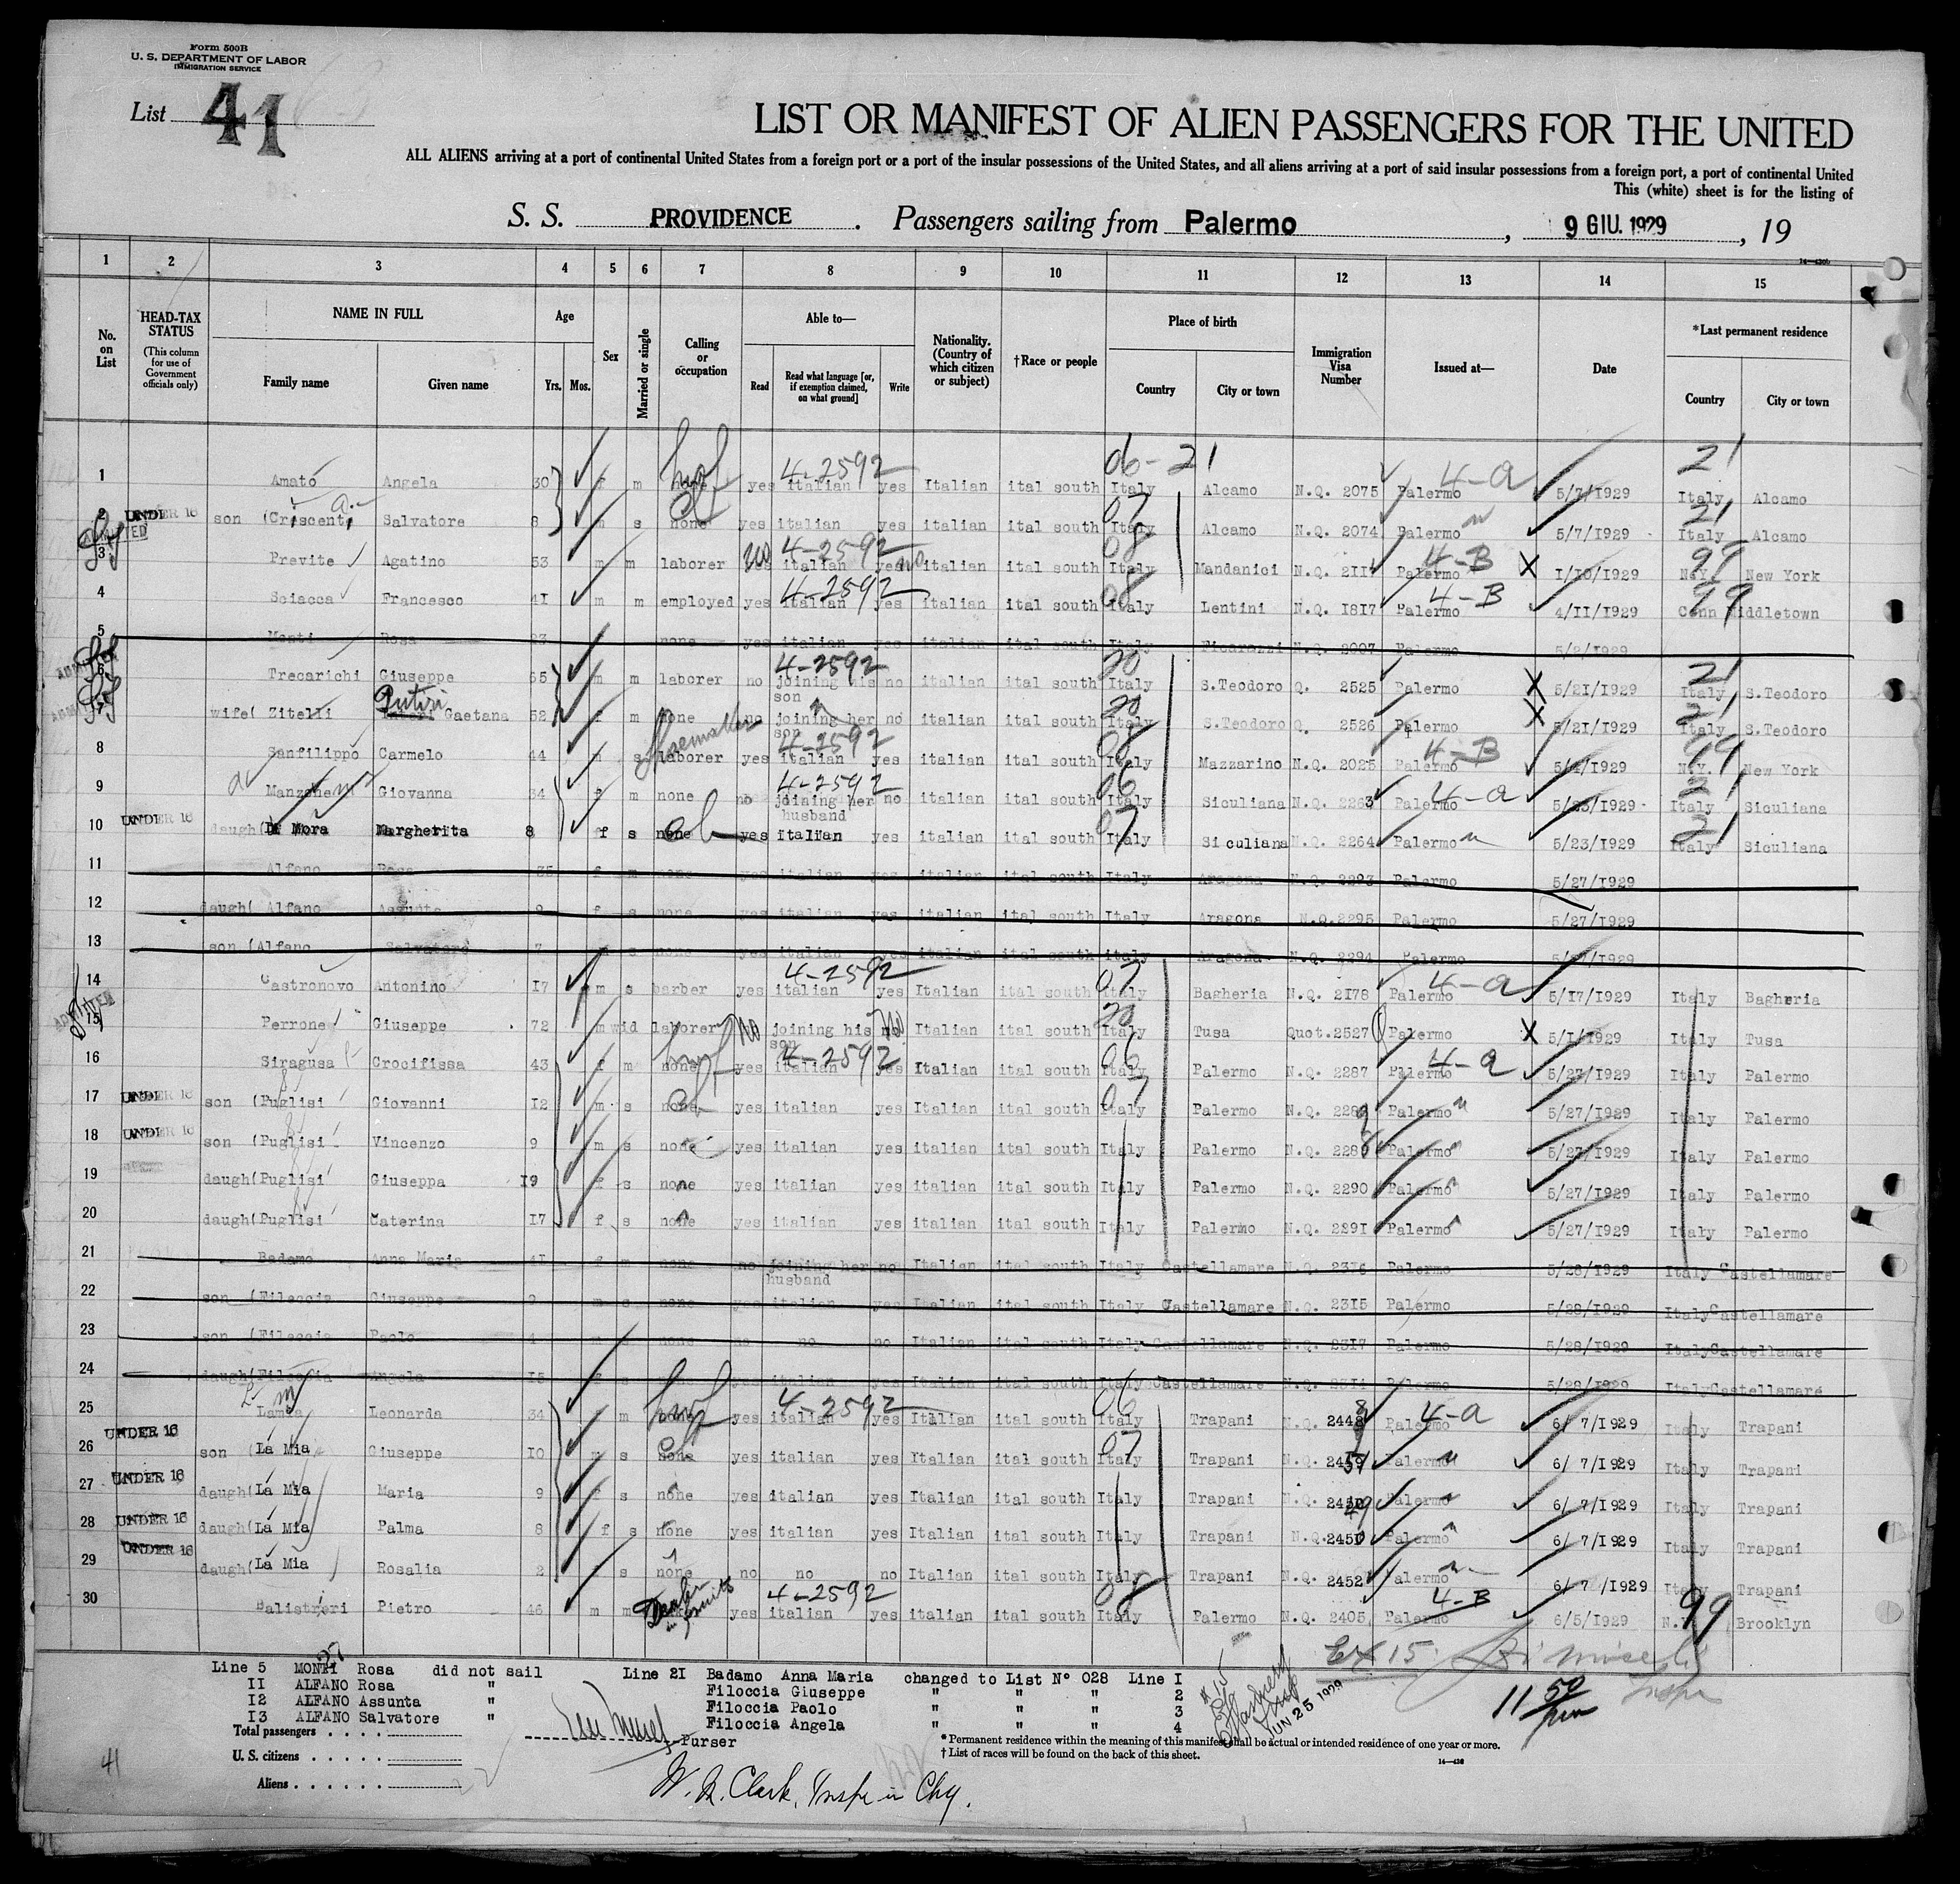 Form 500B
U. S. DEPARTMENT OF LABOR
IMMIGRATION SERVICE
List 41
LIST OR MANIFEST OF ALIEN PASSENGERS FOR THE UNITED
ALL ALIENS arriving at a port of continental United States from a foreign port or a port of the insular possessions of the United States, and all aliens arriving at a port of said insular possessions from a foreign port, a port of continental United
This (white) sheet is for the listing of
S. S. PROVIDENCE. Passengers sailing from Palermo, 9 GIU. 1929, 19
1 2 3 4 5 6 7 8 9 10 11 12 13 14 15
No. on List
HEAD-TAX STATUS (This column for use of Government officials only)
NAME IN FULL Family name Given name
Age Yrs. Mos.
Sex
Married or single
Calling or occupation
Able to— Read Read what language [or, if exemption claimed, on what ground] Write
Nationality. (Country of which citizen or subject)
†Race or people
Place of birth Country City or town
Immigration Visa Number
Issued at—
Date
*Last permanent residence Country City or town
1 Amato Angela 30 f m none hwf yes italian 4-2592 yes Italian ital south Italy 06-21 Alcamo N.Q. 2075 Palermo 4-a 5/7/1929 Italy 21 Alcamo
2 UNDER 16 son (Criscenti Salvatore 8 m s none yes italian yes italian ital south Italy 07 Alcamo N.Q. 2074 Palermo 5/7/1929 Italy 21 Alcamo
3 ADMITTED Previte Agatino 53 m m laborer yes no italian 4-2592 yes no italian ital south Italy 08 Mandanici N.Q. 2117 Palermo 4-B X 1/10/1929 N.Y. 99 New York
4 Sciacca Francesco 41 m m employed yes italian 4-2592 yes italian ital south Italy 08 Lentini N.Q. 1817 Palermo 4-B 4/11/1929 Conn 99 Middletown
5 Monti Rosa 23 none yes italian yes italian ital south Italy Ficarazzi N.Q. 2007 Palermo 5/2/1929
6 ADMITTED Trecarichi Giuseppe 65 m m laborer no joining his son 4-2592 no italian ital south Italy 20 S.Teodoro Q. 2525 Palermo X 5/21/1929 Italy 21 S.Teodoro
7 ADMITTED wife( Zitelli Gaetana 52 f m none no joining her son no italian ital south Italy 20 S.Teodoro Q. 2526 Palermo X 5/21/1929 Italy 21 S.Teodoro
8 Sanfilippo Carmelo 44 m s laborer Shoemaker yes italian 4-2592 yes italian ital south Italy 08 Mazzarino N.Q. 2025 Palermo 4-B 5/4/1929 N.Y. 99 New York
9 Manzone Giovanna 34 f m none no joining her husband 4-2592 no italian ital south Italy 06 Siculiana N.Q. 2263 Palermo 4-a 5/23/1929 Italy 21 Siculiana
10 UNDER 16 daugh(Di Mora Margherita 8 f s none yes italian yes italian ital south Italy 07 Siculiana N.Q. 2264 Palermo 5/23/1929 Italy 21 Siculiana
11 Alfano Rosa 35 f m none yes italian yes italian ital south Italy Aragona N.Q. 2293 Palermo 5/27/1929
12 daugh( Alfano Assunta 9 f s none yes italian yes italian ital south Italy Aragona N.Q.2295 Palermo 5/27/1929
13 son (Alfano Salvatore 7 m s none yes italian yes italian ital south italy Aragona N.Q. 2294 Palermo 5/27/1929
14 Castronovo Antonino 17 m s barber yes italian 4-2592 yes Italian ital south Italy 07 Bagheria N.Q. 2178 Palermo 4-a 5/17/1929 Italy Bagheria
15 ADMITTED Perrone Giuseppe 72 m wid laborer No joining his son no Italian ital south Italy 20 Tusa Quot.2527 Palermo X 5/1/1929 Italy Tusa
16 Siragusa Crocifissa 43 f m none hwf yes italian 4-2592 yes Italian ital south Italy 06 Palermo N.Q. 2287 Palermo 4-a 5/27/1929 Italy Palermo
17 UNDER 16 son (Puglisi Giovanni 12 m s none yes italian yes italian ital south Italy 07 Palermo N.Q. 2289 Palermo 5/27/1929 Italy Palermo
18 UNDER 16 son (Puglisi Vincenzo 9 m s none yes italian yes italian ital south Italy Palermo N.Q. 2288 Palermo 5/27/1929 Italy Palermo
19 daugh(Puglisi Giuseppa 19 f s none yes italian yes italian ital south Italy Palermo N.Q. 2290 Palermo 5/27/1929 Italy Palermo
20 daugh(Puglisi Caterina 17 f s none yes italian yes italian ital south Italy Palermo N.Q. 2291 Palermo 5/27/1929 Italy Palermo
21 Badamo Anna Maria 41 f m none no joining her husband no Italian ital south Italy Castellamare N.Q. 2316 Palermo 5/28/1929 Italy Castellamare
22 son (Filoccia Giuseppe 9 m s none yes italian yes Italian ital south Italy Castellamare N.Q. 2315 Palermo 5/28/1929 Italy Castellamare
23 son (Filoccia Paolo 4 m none no no no Italian ital south Italy Castellamare N.Q. 2317 Palermo 5/28/1929 Italy Castellamare
24 daugh(Filoccia Angela 15 s yes italian yes Italian ital south Italy Castellamare N.Q. Palermo 5/28/1929 Italy Castellamare
25 Lamia Leonarda 34 f m none hwf yes italian 4-2592 yes Italian ital south Italy 06 Trapani N.Q. 2448 Palermo 4-a 6/7/1929 Italy Trapani
26 UNDER 16 son (La Mia Giuseppe 10 m s none yes italian yes italian ital south Italy 07 Trapani N.Q. Palermo 6/7/1929 Italy Trapani
27 UNDER 16 daugh(La Mia Maria 9 f s none yes italian yes Italian ital south Italy Trapani N.Q. Palermo 6/7/1929 Italy Trapani
28 UNDER 16 daugh(La Mia Palma 8 f s none yes italian yes Italian ital south Italy Trapani N.Q. Palermo 6/7/1929 Italy Trapani
29 UNDER 16 daugh(La Mia Rosalia 2 s none no no no Italian ital south Italy Trapani N.Q. 2452 Palermo 6/7/1929 Italy Trapani
30 Balistreri Pietro 46 m m Dealer in fruits yes italian 4-2592 yes italian ital south Italy 08 Palermo N.Q. 2405 Palermo 4-B 6/5/1929 N.Y. 99 Brooklyn
Line 5 MONTI Rosa did not sail
11 ALFANO Rosa "
12 ALFANO Assunta "
13 ALFANO Salvatore "
Line 21 Badamo Anna Maria changed to List N° 028 Line 1
Filoccia Giuseppe " " " 2
Filoccia Paolo " " " 3
Filoccia Angela " " " 4
JUN 25 1929
11 50
Total passengers
U. S. citizens
Aliens
Purser
* Permanent residence within the meaning of this manifest shall be actual or intended residence of one year or more.
† List of races will be found on the back of this sheet.
41
W. R. Clark, Inspr in Chg.